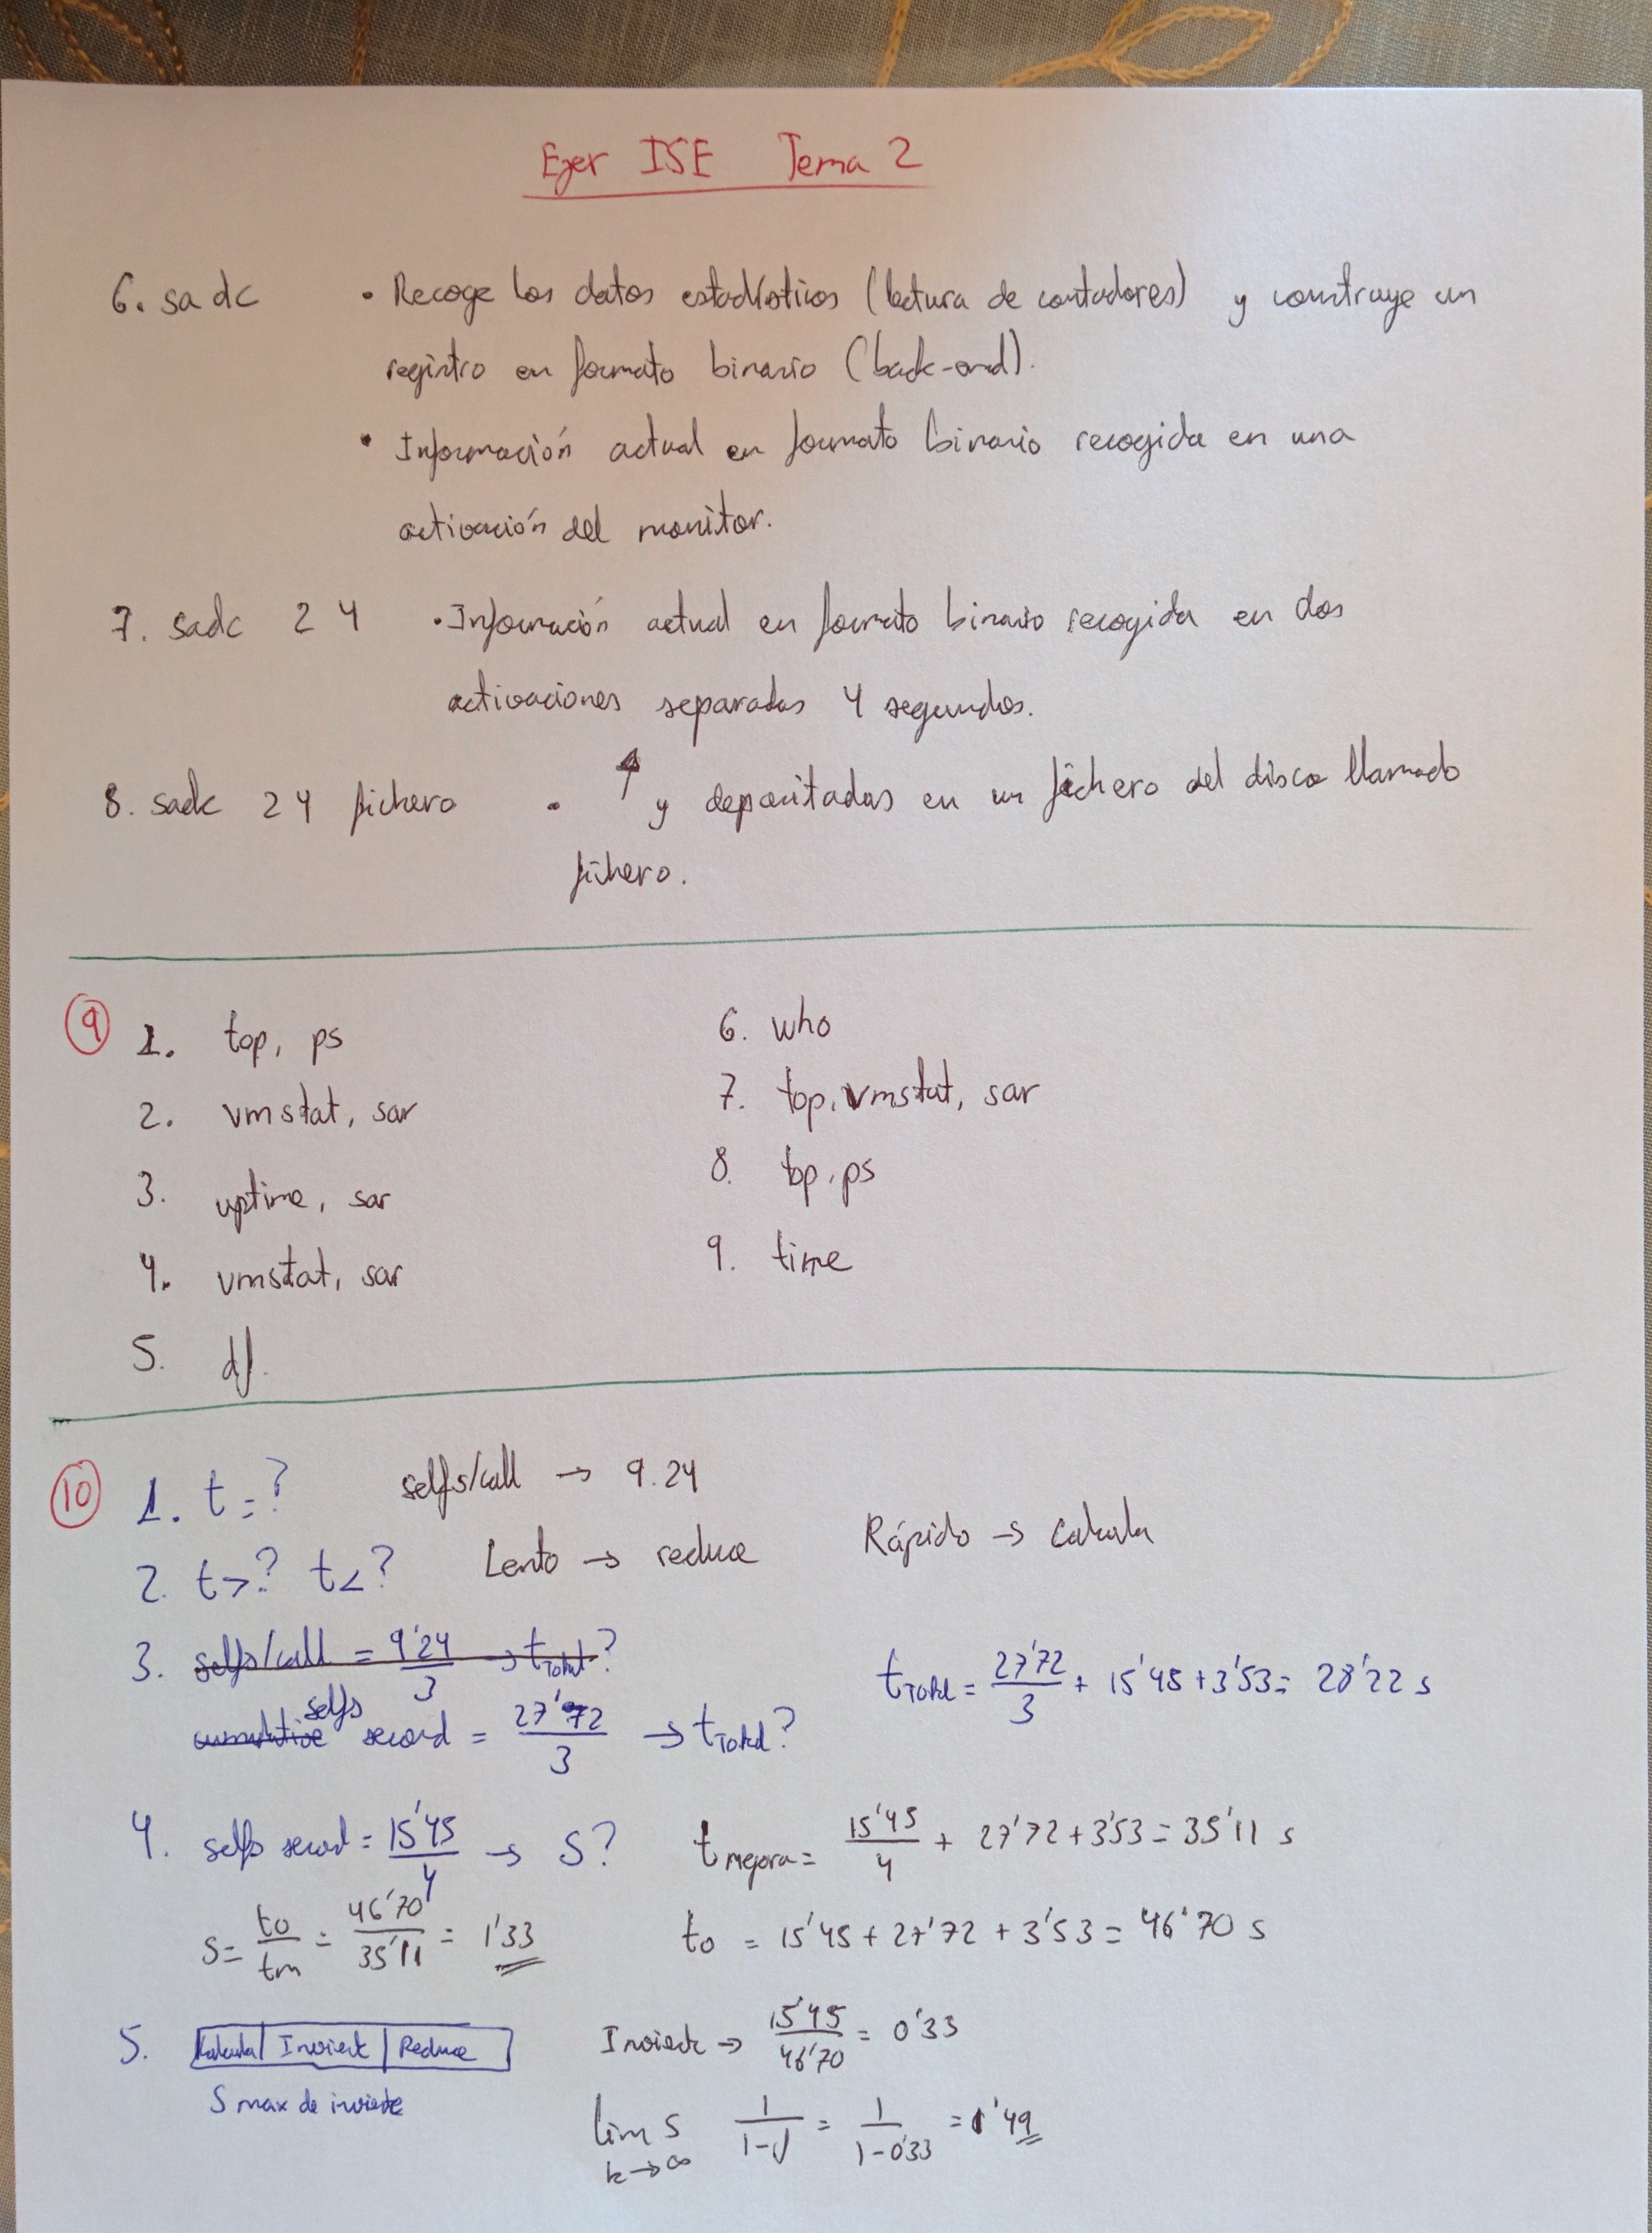 Ejer ISE Tema 2
6. sadc • Recoge los datos estadísticos (lectura de contadores) y construye un
registro en formato binario (back-end).
• Información actual en formato binario recogida en una
activación del monitor.
7. sadc 2 4 • Información actual en formato binario recogida en dos
activaciones separadas 4 segundos.
8. sadc 2 4 fichero • ↑ y depositadas en un fichero del disco llamado
fichero.
9 1. top, ps
2. vmstat, sar
3. uptime, sar
4. vmstat, sar
5. df.
6. who
7. top, vmstat, sar
8. top, ps
9. time
10 1. t=? selfs/call → 9.24
2. t>? t<? Lento → reduce Rápido → calcula
3. selfs/call = 9'24/3 → tTotal?
cumulative selfs second = 27'72/3 → tTotal? tTotal = 27'72/3 + 15'45 + 3'53 = 28'22 s
4. selfs second = 15'45/4 → S? tmejora = 15'45/4 + 27'72 + 3'53 = 35'11 s
S = to/tm = 46'70/35'11 = 1'33 to = 15'45 + 27'72 + 3'53 = 46'70 s
5. Calcula | Invierte | Reduce Invierte → 15'45/46'70 = 0'33
S max de invierte
lim S k→∞ 1/1-f = 1/1-0'33 = 1'49